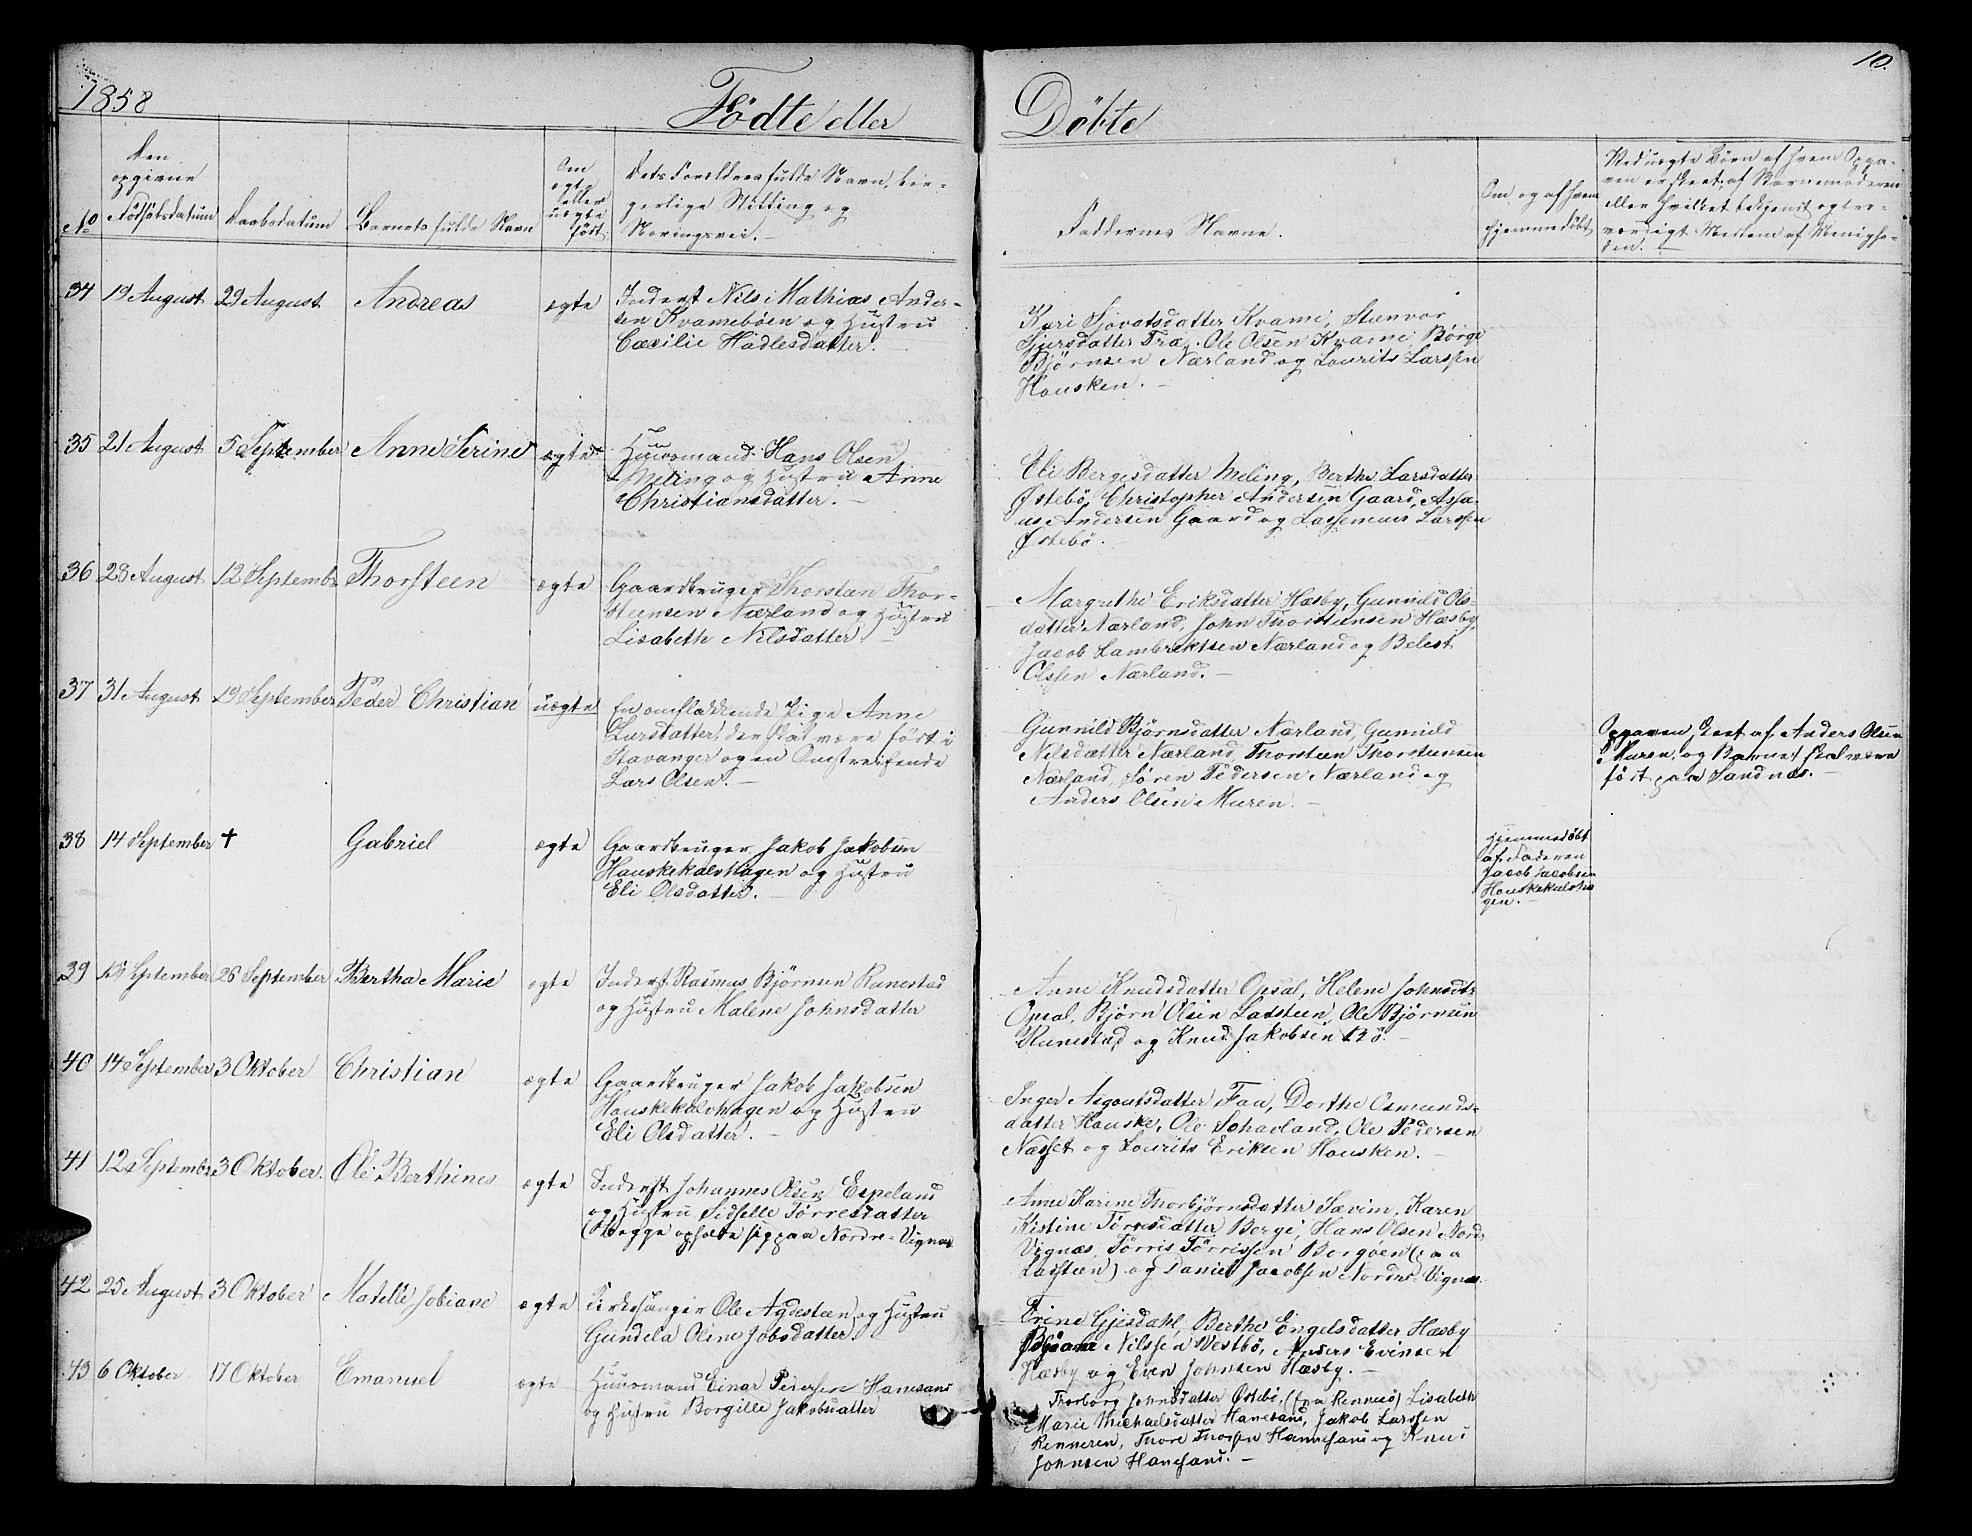 1858
Födte eller
Döbte
10.
No
Den
opgivne
Födselsdatum
Daabsdatum
Barnets fulde Navn
Om
ægte
eller
uægte
født
Dets Forældres fulde Navn, bor-
gerlige Stilling og
Næringsvei. —
Faddernes Navne.
Om og af hvem
hjemmedøbt
Ved uægte Børn af hvem Opga-
ven er skeet, af Barnemoderen
eller hvilket bekjendt og tro-
værdigt Medlem af Menighe-
den. —
34 19 August 29 August Andreas ægte
Inderst Nils Mathias Ander-
sen Kvamebøen og Hustru
Cæcilie Hadlesdatter.
Kari Sjovatsdatter Kvame, Steenvor
Sjursdatter Træ, Ole Olsen Kvame, Børge
Bjørnsen Nærland og Lourits Larssen
Housken. —
35 21 August 5 September Anne Serine ægte
Huusmand Hans Olsen
Meling og Hustru Anne
Christiansdatter. —
Eli Bergesdatter Meling, Berthe Larsdatter
Østebö, Christopher Andersen Gaard, Assa-
us Andersen Gaard og Larssen
Østebö. —
36 28 August 12 Septemb. Thorsteen ægte
Gaardbruger Thorsteen Thor-
steensen Nærland og Hustru
Lisabeth Nilsdatter. —
Margrethe Eriksdatter Hæsby, Gunnild Ols-
datter Nærland, John Thorsteensen Hæsby,
Jacob Lambrektsen Nærland og Belest
Olssen Nærland. —
37 31 August 19 September Peder Christian uægte
En omflakkende Pige Anne
Larsdatter, der skal være født i
Stavanger og en Omstreifende
Lars Olsen. —
Gunnild Björnsdatter Nærland, Gunnild
Nilsdatter Nærland, Thorsteen Thorsteensen
Nærland, Søren Pedersen Nærland og
Anders Olsen Muren. —
Opgaven skeet af Anders Olsen
Muren, og Barnet skal være
født paa Sandnæs. —
38 14 September † Gabriel ægte
Gaardbruger Jakob Jakobsen
Hauskekalvhagen og Hustru
Eli Olsdatter. —
Hjemmedøbt
af Faderen
Jacob Jacobsen
Houskekalvha
gen. —
39 September 26 September Bertha Marie ægte
Inderst Rasmus Bjørnsen Runestad
og Hustru Malene Johnsdatter
Anne Knudsdatter Opsal, Helene Johnsdt.
Opsal, Bjørn Olsen Ladsteen, Ole Bjørnsen
Runestad og Knud Jakobsen Bö. —
40 14 September 3 Oktober Christian ægte
Gaardbruger Jakob Jakobsen
Houskekalvhagen og Hustru
Eli Olsdatter. —
Inger Asgoutsdatter Faa, Dorthe Osmunds-
datter Houske, Ole Schavland, Ole Pedersen
Næsset og Lourits Eriksen Housken. —
41 12 Septembr. 3 Oktober. Ole Berthines ægte
Inderst Johannes Olsen Espeland
og Hustru Sidselle Törresdatter
(Begge opholde sig paa Nordre-Vignæs
Anne Karine Thorbjörnsdatter Sævim, Karen
Kistine Törresdatter Berge, Hans Olsen Nord-
Vignæs, Törris Törrissen Bergøen (paa
Ladsteen) og Daniel Jacobsen Nordre-Vignæs
42 25 August 3 Oktober Matelle Jobiane ægte
Kirkesanger Ole Agdesteen og Hustru
Gundela Oline Jobsdatter
Trine Gjesdahl, Berthe Engelsdatter Hæsby
Nilssen Vestbö, Anders Evensen
Hæsby og Even Johnsen Hæsby. —
43 6 Oktober 17 Oktober Emanuel ægte
Huusmand Einar Pedersen Hanesand
og Hustru Borgille Jakobsdatter
Thorborg Johnsdatter Østebö, (fra Rennesö) Lisabeth
Marie Michaelsdatter Hanesand, Jakob Larssen
Renneren, Thore Thorsen Hannesand og Knud
Johnsen Hanesand. —